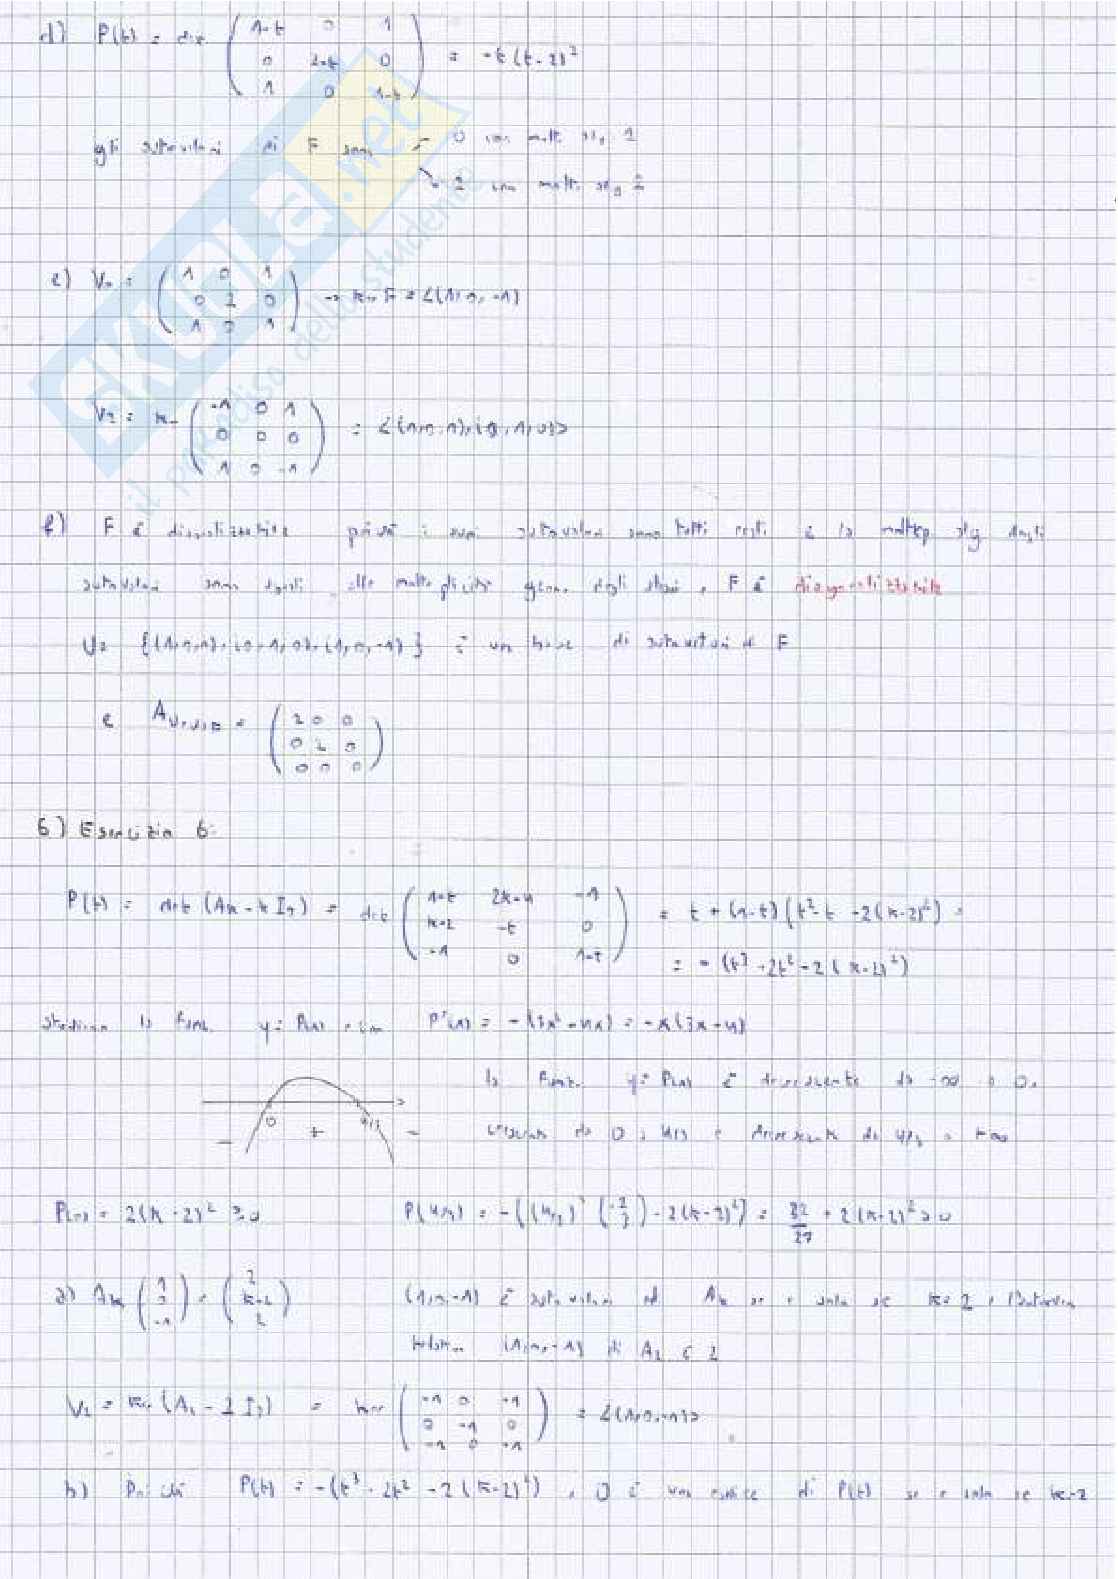 d) P(t) = det ( 1-t 0 1
0 2-t 0
1 0 1-t ) = -t (t-2)²
gli autovalori di F sono 0 con molt. alg 1
2 con molt. alg 2
SKUOLA.net
il paradiso dello studente
e) V₀ = ( 1 0 1
0 2 0
1 0 1 ) → Ker F = <(1, 0, -1)
V₂ = Ker ( -1 0 1
0 0 0
1 0 -1 ) = <(1,0,1), (0,1,0)>
f) F è diagonalizzabile poiché i suoi autovalori sono tutti reali e la moltep. alg degli
autovalori sono uguali alle molteplicità geom. degli stessi, F è diagonalizzabile
{(1,0,1), (0,1,0), (1,0,-1)} è una base di autovettori di F
e A = ( 2 0 0
0 2 0
0 0 0 )
6) Esercizio 6:
P(t) = det (Ak - t I₃) = det ( 1-t 2k-4 -1
k-2 -t 0
-1 0 1-t ) = t + (1-t) (t² - t - 2(k-2)²) =
= - (t³ - 2t² - 2 (k-2)²)
studiamo la funz. y = P(x) P'(x) = - (3x² - 4x) = -x(3x-4)
la funz. y = P(x) è decrescente da -∞ a 0,
0 4/3
- + -
crescente da 0 a 4/3 e decrescente da 4/3 a +∞
P(0) = 2(k-2)² ≥ 0 P(4/3) = - ((4/3)² (-2/3) - 2(k-2)²) = 32/27 + 2(k-2)² > 0
a) Ak ( 1
0
-1 ) = ( 2
k-2
2 ) (1,0,-1) è autovalore di Ak se e solo se k=2
(1,0,-1) di A₂ è 2
V₂ = Ker (A₂ - 2 I₃) = Ker ( -1 0 -1
0 -1 0
-1 0 -1 ) = <(1,0,-1)>
b) Poiché P(t) = - (t³ - 2t² - 2 (k-2)²), 0 è una radice di P(t) se e solo se k=2